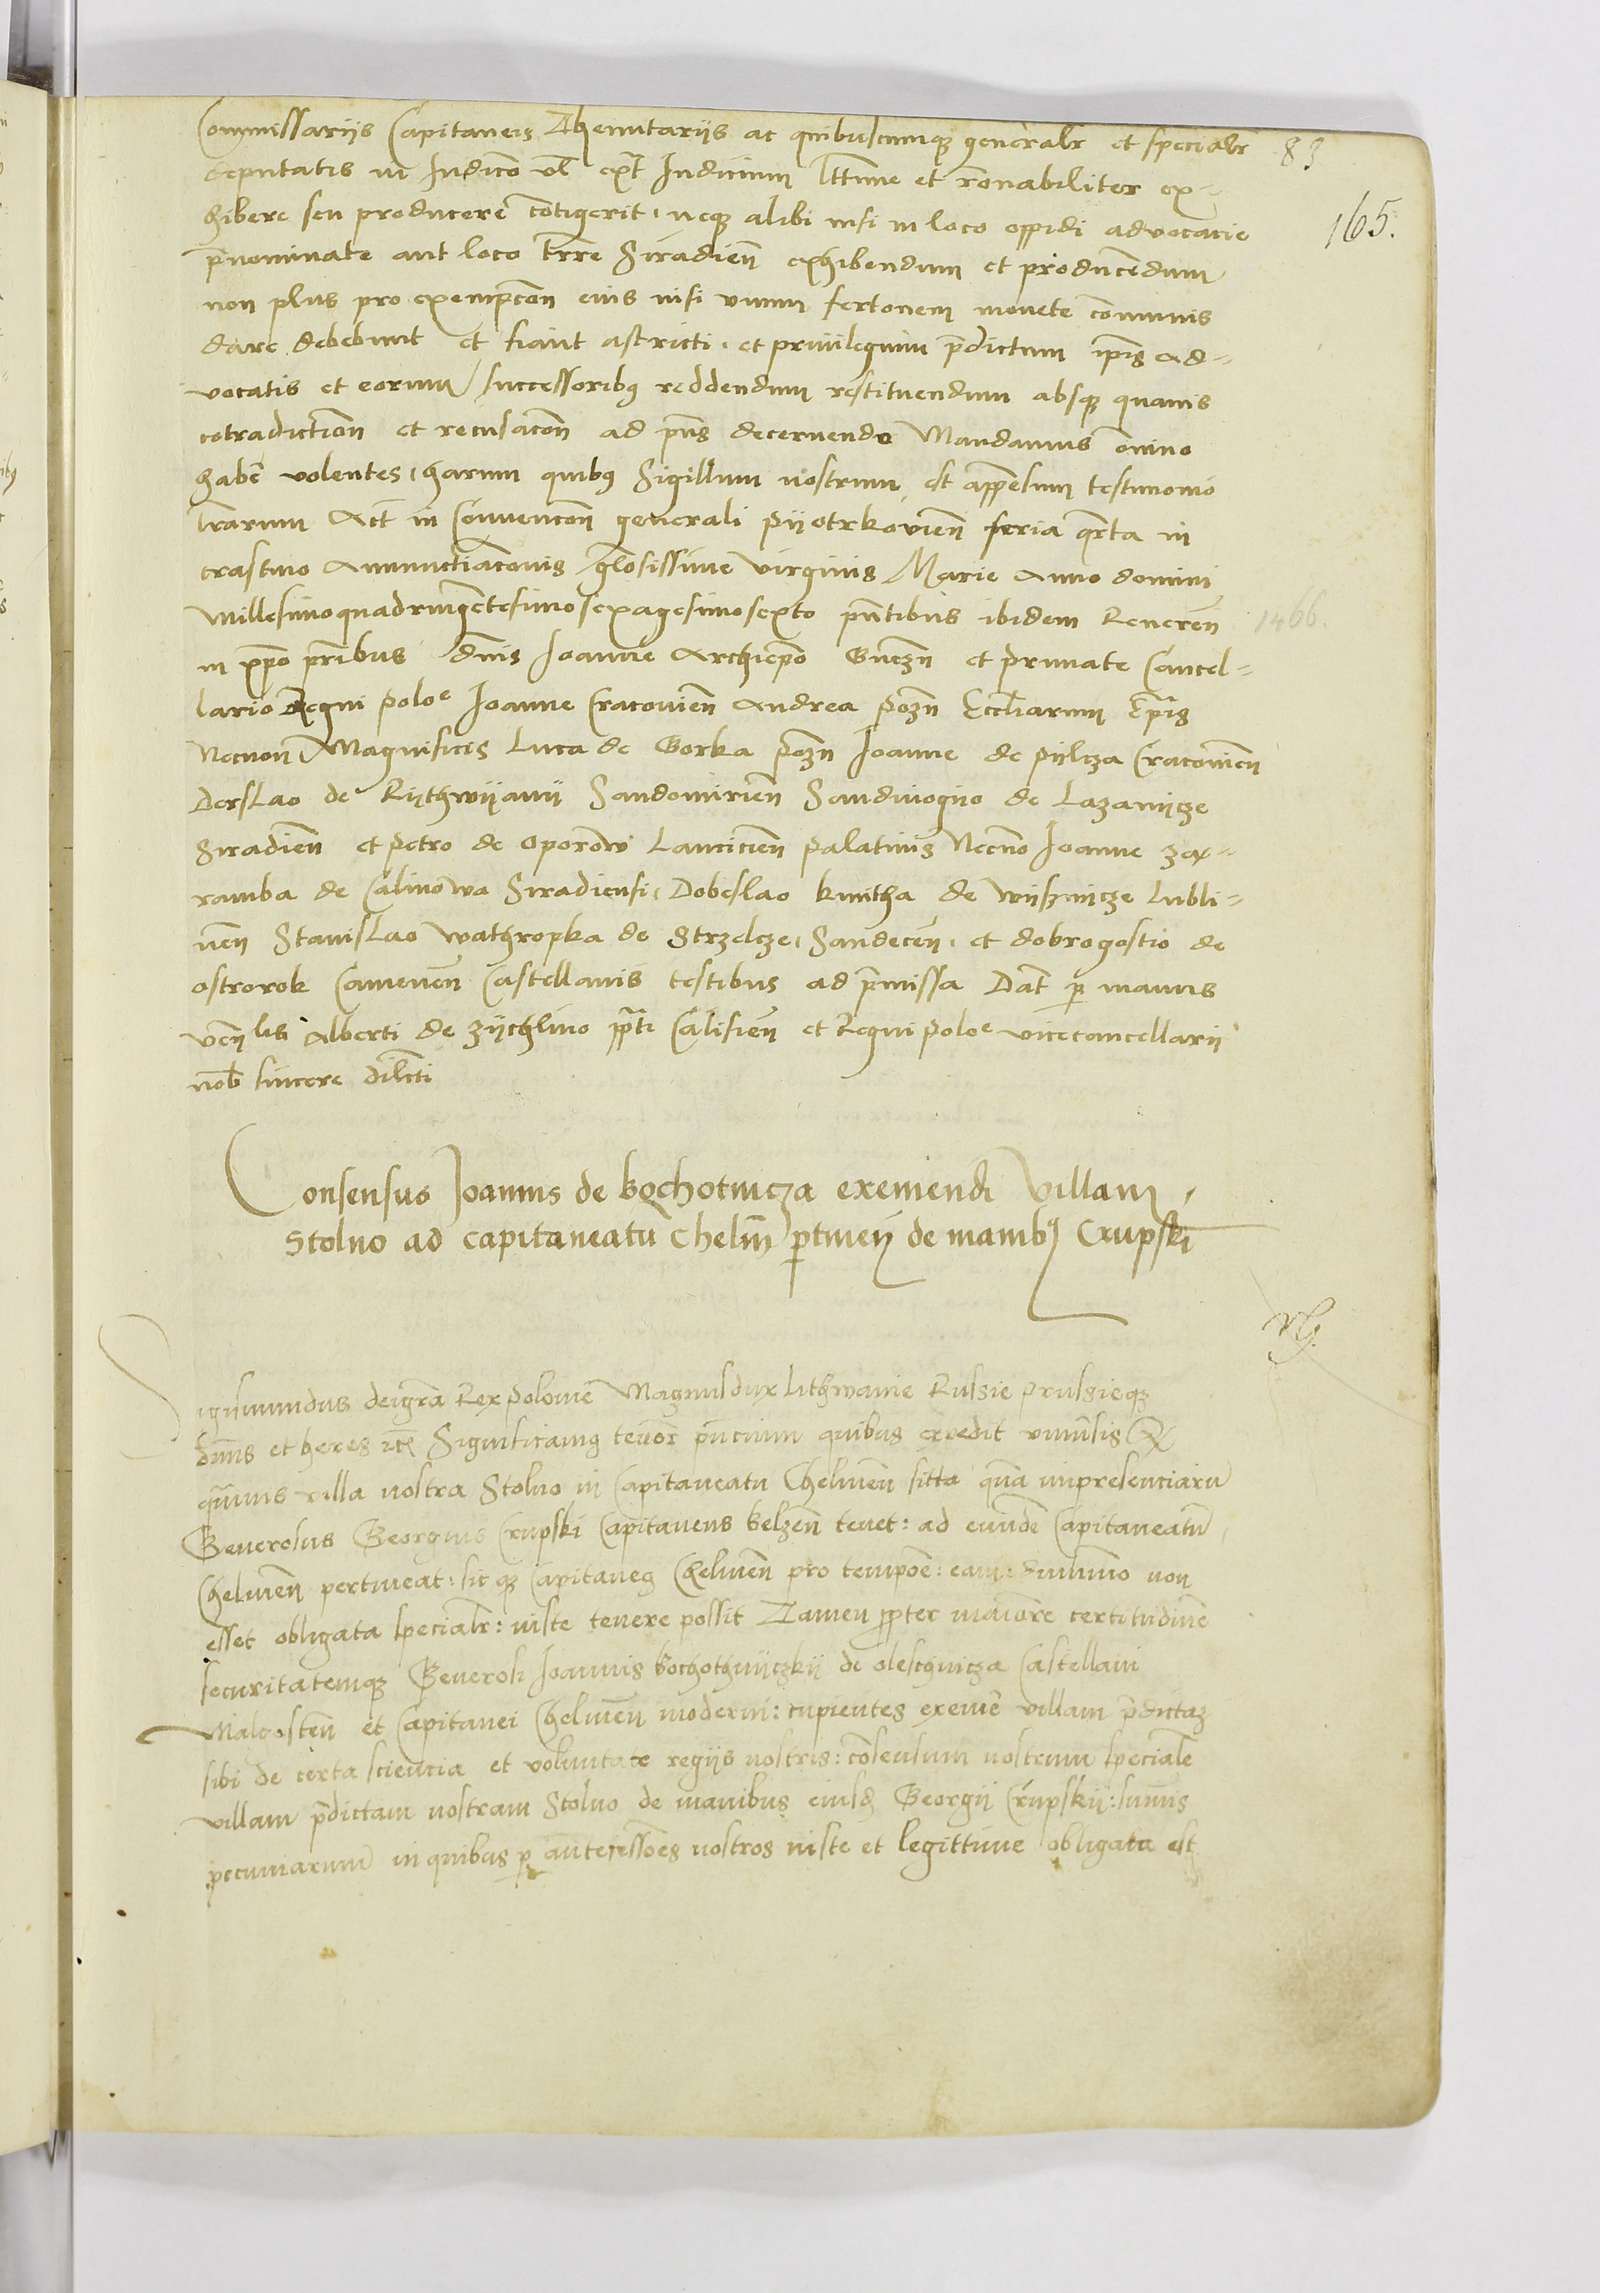 Commissariis Capitaneis Thenutariis ac quibuscumque generalr et specialr 83
deputatis in Iudico vl ext Iudicium lttime et ronabiliter ex-
hibere seu producere cotigerit, neque alibi nisi in loco oppidi advocacie 165.
prenominate aut loco terre Siradien exhibendum et producendum
non plus pro exempcon eius nisi unum fertonem monete communis
dare debebunt et fiant astricti. et privilegium predictum ipsis ad-
vocatis et eorum successoribus reddendum restituendum absque quavis
cotradiction et recusacon ad pns decernendo Mandamus omnino
haberi volentes, harum quibus Sigillum nostrum est appensum testimonio
lrarum Act in Convencon generali Pyotrkovien feria quarta in
crastino Annunctiaconis gloosissime virginis Marie Anno domini
Millesimoquadringentesimosexagesimosexto pntibus ibidem Reveren 1466.
in xpo pribus dnis Ioanne Archiepo Gnezn et primate Cancel-
lario Regni poloe Ioanne Cracovien Andrea pozn Eccliarum Epis
Necnon Magnificis Luca de Gorka pozn Ioanne de pilcza Cracovien
Derslao de Rythwyany Sandomirien Sandivogio de Lazanycze
Siradien et petro de Oporow Lancicien palatinis Necno Ioanne zar-
ramba de Calinowa Siradiensi, Dobeslao kmitha de wysznycze Lubli-
nen Stanislao wathropka de Strzelcze, Sandecen, et dobrogostio de
ostrorok Camenen Castellanis testibus ad premissa Dat per manus
ven lis Alberti de zychlino ppti Calisien et Regni poloe vicecancellarii
nob sincere dilcti
Consensus Ioannis de kochotnicza exemendi villam
Stolno ad capitaneatu Chelm ptinen de manibus Crupski
Sigismundus dei gra Rex polonie Magnus dux Lithwanie Russie prussieque
dnus et heres etc Significamus tenor pncium quibus expedit universis Q
quavis villa nostra Stolno in Capitaneatu Chelmen sitta qua inpresenciaru
Generosus Georgius Crupski Capitaneus belzen tenet: ad eunde Capitaneatu
Chelmen pertineat: sic que Capitaneus Chelmen pro tempore: eam: non
esset obligata specialr: iuste tenere possit Tamen propter maiore certitudine
securitatemque Generosi Ioannis kochothniczky de oleschnicza Castellani
Malogosten et Capitanei Chelmen moderni: cupientes exemere villam predictam
sibi de certa sciencia et voluntate regiis nostris: consensum nostrum speciale
villam predictam nostram Stolno de manibus eiusdem Georgii Crupskii: sumis
pecuniarum in quibus per antecessores nostros iuste et legittime obligata est